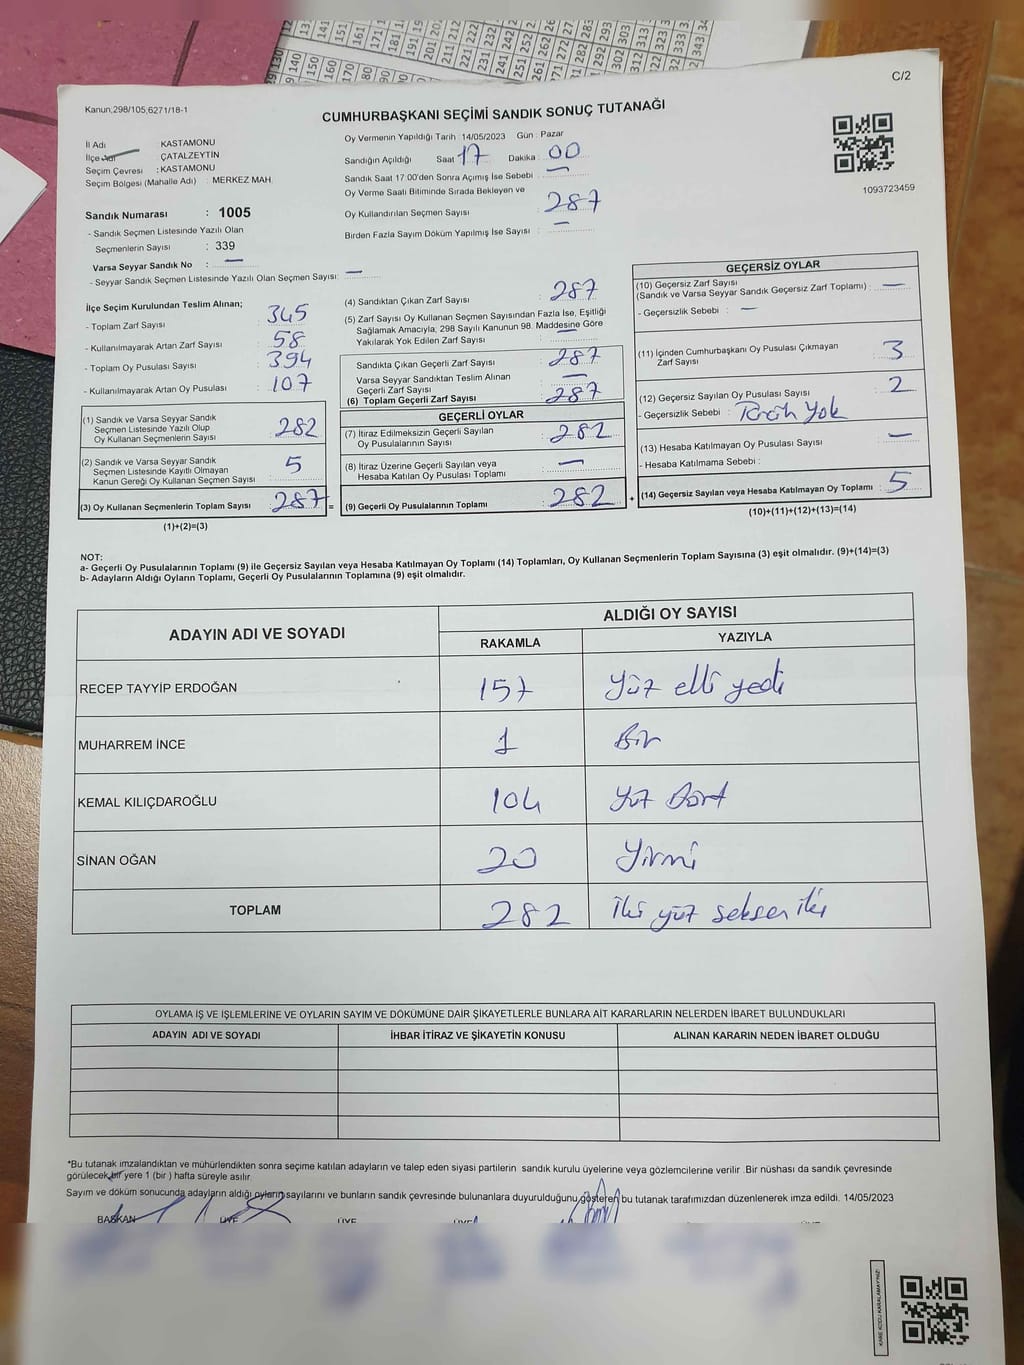 C/2
Kanun;298/105,6271/18-1
CUMHURBAŞKANI SEÇİMİ SANDIK SONUÇ TUTANAĞI
İl Adı : KASTAMONU
İlçe Adı : ÇATALZEYTİN
Seçim Çevresi : KASTAMONU
Seçim Bölgesi (Mahalle Adı) : MERKEZ MAH.
Oy Vermenin Yapıldığı Tarih : 14/05/2023 Gün : Pazar
Sandığın Açıldığı Saat 17 Dakika : 00
Sandık Saat 17.00'den Sonra Açımış İse Sebebi : —
Oy Verme Saati Bitiminde Sırada Bekleyen ve
Oy Kullandırılan Seçmen Sayısı : 287
Birden Fazla Sayım Döküm Yapılmış İse Sayısı : —
1093723459
Sandık Numarası : 1005
- Sandık Seçmen Listesinde Yazılı Olan
Seçmenlerin Sayısı : 339
Varsa Seyyar Sandık No : —
- Seyyar Sandık Seçmen Listesinde Yazılı Olan Seçmen Sayısı: —
İlçe Seçim Kurulundan Teslim Alınan;
- Toplam Zarf Sayısı : 345
- Kullanılmayarak Artan Zarf Sayısı : 58
- Toplam Oy Pusulası Sayısı : 394
- Kullanılmayarak Artan Oy Pusulası : 107
(1) Sandık ve Varsa Seyyar Sandık
Seçmen Listesinde Yazılı Olup
Oy Kullanan Seçmenlerin Sayısı : 282
(2) Sandık ve Varsa Seyyar Sandık
Seçmen Listesinde Kayıtlı Olmayan
Kanun Gereği Oy Kullanan Seçmen Sayısı : 5
(3) Oy Kullanan Seçmenlerin Toplam Sayısı : 287 =
(1)+(2)=(3)
(4) Sandıktan Çıkan Zarf Sayısı : 287
(5) Zarf Sayısı Oy Kullanan Seçmen Sayısından Fazla İse, Eşitliği
Sağlamak Amacıyla; 298 Sayılı Kanunun 98. Maddesine Göre
Yakılarak Yok Edilen Zarf Sayısı : —
Sandıkta Çıkan Geçerli Zarf Sayısı : 287
Varsa Seyyar Sandıktan Teslim Alınan
Geçerli Zarf Sayısı : —
(6) Toplam Geçerli Zarf Sayısı : 287
GEÇERLİ OYLAR
(7) İtiraz Edilmeksizin Geçerli Sayılan
Oy Pusulalarının Sayısı : 282
(8) İtiraz Üzerine Geçerli Sayılan veya
Hesaba Katılan Oy Pusulası Toplamı : —
(9) Geçerli Oy Pusulalarının Toplamı : 282 +
GEÇERSİZ OYLAR
(10) Geçersiz Zarf Sayısı
(Sandık ve Varsa Seyyar Sandık Geçersiz Zarf Toplamı) : —
- Geçersizlik Sebebi : —
(11) İçinden Cumhurbaşkanı Oy Pusulası Çıkmayan
Zarf Sayısı : 3
(12) Geçersiz Sayılan Oy Pusulası Sayısı : 2
- Geçersizlik Sebebi : Tercih Yok
(13) Hesaba Katılmayan Oy Pusulası Sayısı : —
- Hesaba Katılmama Sebebi :
(14) Geçersiz Sayılan veya Hesaba Katılmayan Oy Toplamı : 5
(10)+(11)+(12)+(13)=(14)
NOT:
a- Geçerli Oy Pusulalarının Toplamı (9) ile Geçersiz Sayılan veya Hesaba Katılmayan Oy Toplamı (14) Toplamları, Oy Kullanan Seçmenlerin Toplam Sayısına (3) eşit olmalıdır. (9)+(14)=(3)
b- Adayların Aldığı Oyların Toplamı, Geçerli Oy Pusulalarının Toplamına (9) eşit olmalıdır.
ADAYIN ADI VE SOYADI
ALDIĞI OY SAYISI
RAKAMLA YAZIYLA
RECEP TAYYİP ERDOĞAN 157 Yüz elli yedi
MUHARREM İNCE 1 Bir
KEMAL KILIÇDAROĞLU 104 Yüz Dört
SİNAN OĞAN 20 Yirmi
TOPLAM 282 İki yüz seksen iki
OYLAMA İŞ VE İŞLEMLERİNE VE OYLARIN SAYIM VE DÖKÜMÜNE DAİR ŞİKAYETLERLE BUNLARA AİT KARARLARIN NELERDEN İBARET BULUNDUKLARI
ADAYIN ADI VE SOYADI İHBAR İTİRAZ VE ŞİKAYETİN KONUSU ALINAN KARARIN NEDEN İBARET OLDUĞU
*Bu tutanak imzalandıktan ve mühürlendikten sonra seçime katılan adayların ve talep eden siyasi partilerin sandık kurulu üyelerine veya gözlemcilerine verilir .Bir nüshası da sandık çevresinde
görülecek bir yere 1 (bir ) hafta süreyle asılır.
Sayım ve döküm sonucunda adayların aldığı oyların sayılarını ve bunların sandık çevresinde bulunanlara duyurulduğunu gösteren bu tutanak tarafımızdan düzenlenerek imza edildi. 14/05/2023
BAŞKAN ÜYE ÜYE ÜYE
KARE KODU KARALAMAYINIZ!